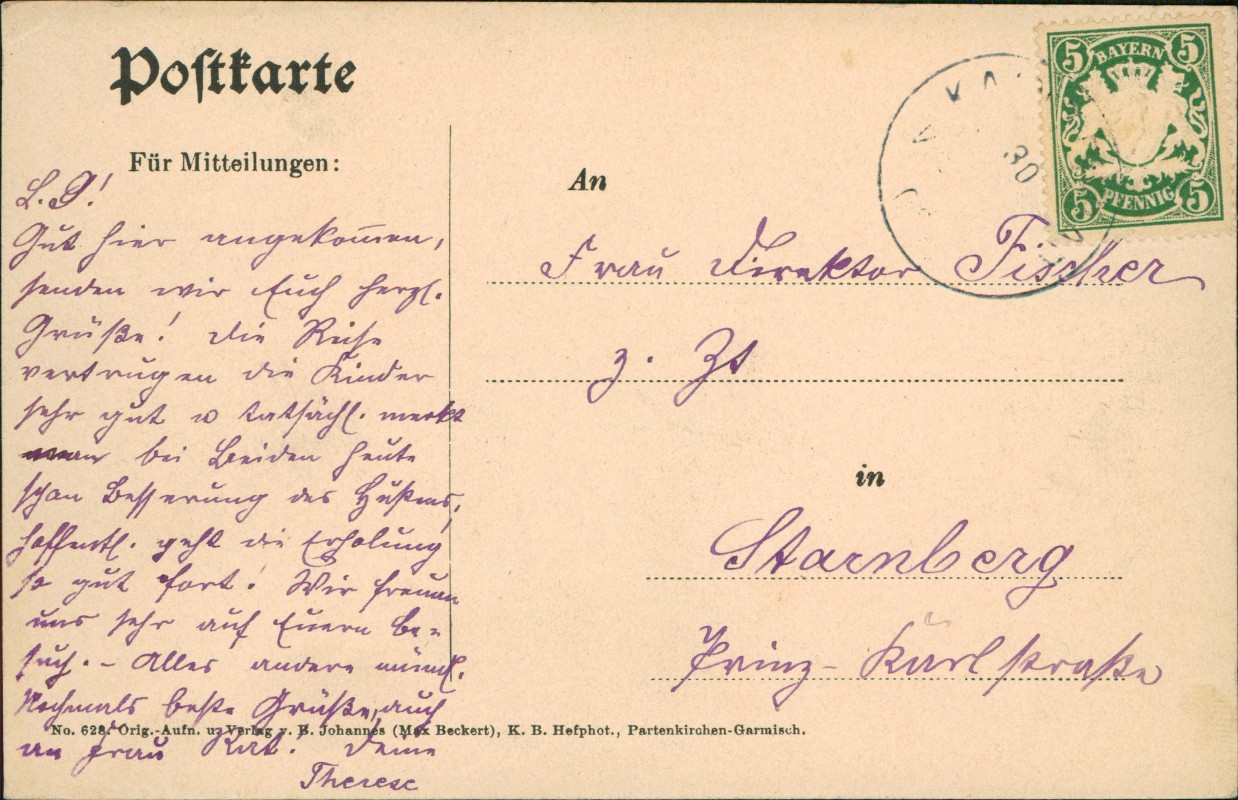 Postkarte
Für Mitteilungen:
L. G!
Gut hier angekommen,
senden wir Euch herzl.
Grüße! Die Reise
vertrugen die Kinder
sehr gut u tatsächl. merkt
man bei Beiden heute
schon Besserung des Hustens,
hoffentl. geht die Erholung
so gut fort! Wir freuen
uns sehr auf Euern Be-
such. - Alles andere mündl.
Nochmals beste Grüße, auch
an Frau Rat. Deine
Therese
An
Frau Direktor Fischer
z. Zt
in
Starnberg
Prinz-Karlstraße
5 BAYERN 5
5 PFENNIG 5
30
No. 628. Orig.-Aufn. u. Verlag v. B. Johannes (Max Beckert), K. B. Hofphot., Partenkirchen-Garmisch.